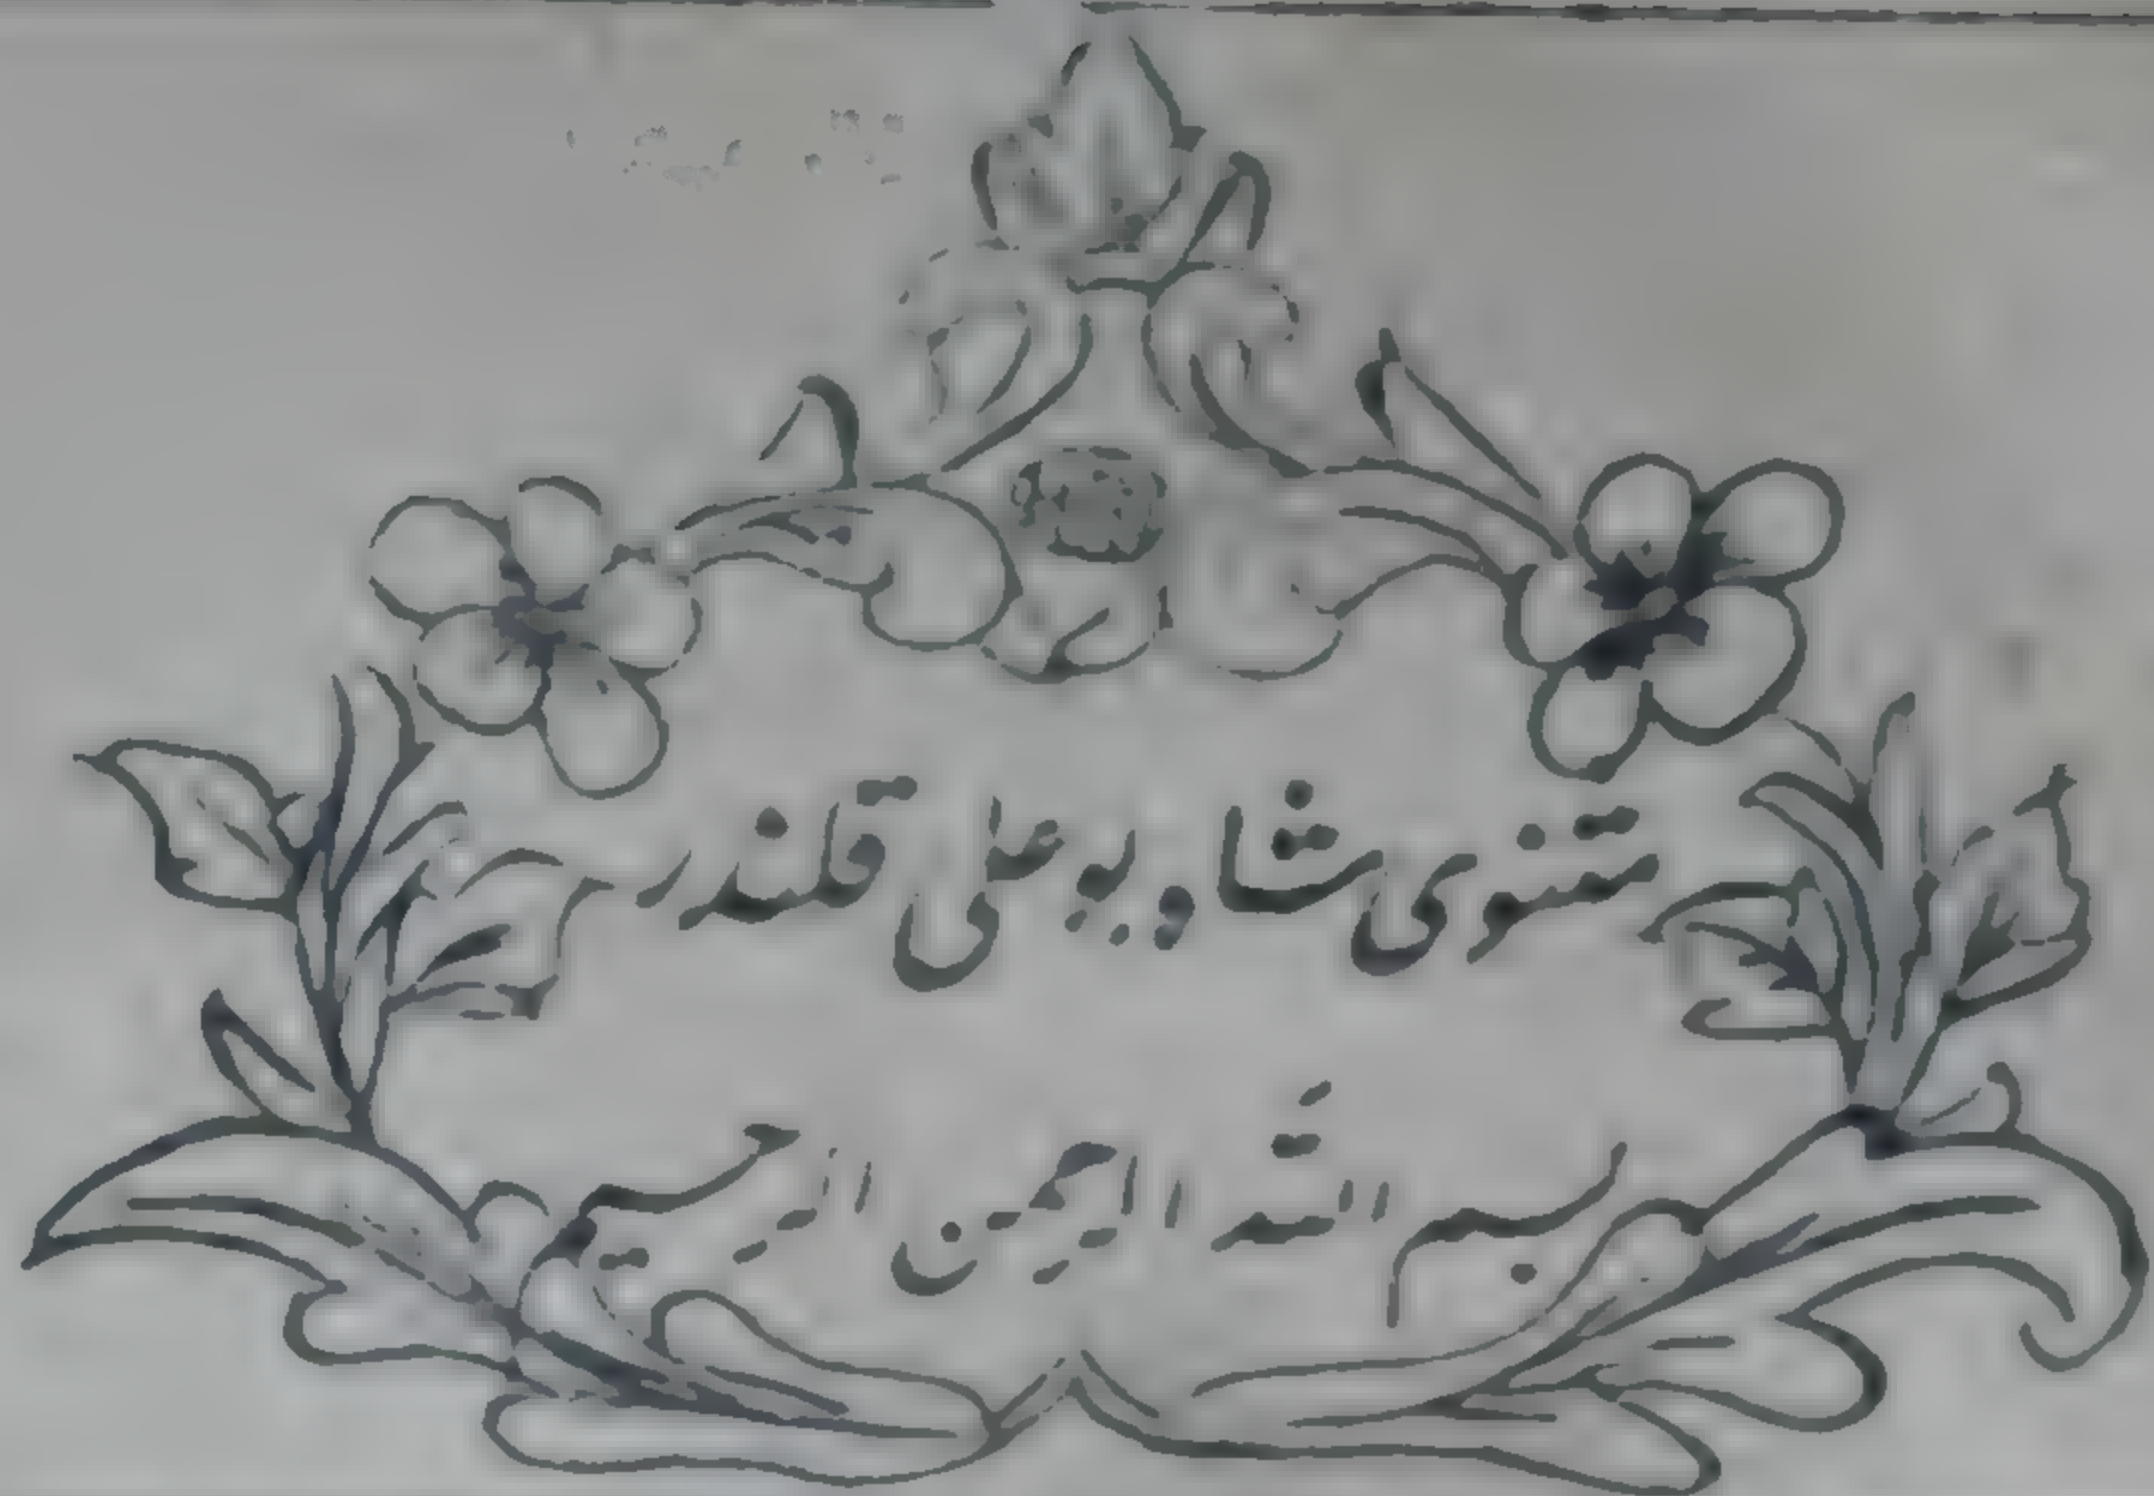 مثنوی شاه بوعلی قلندر
بسم الله الرحمن الرحیم